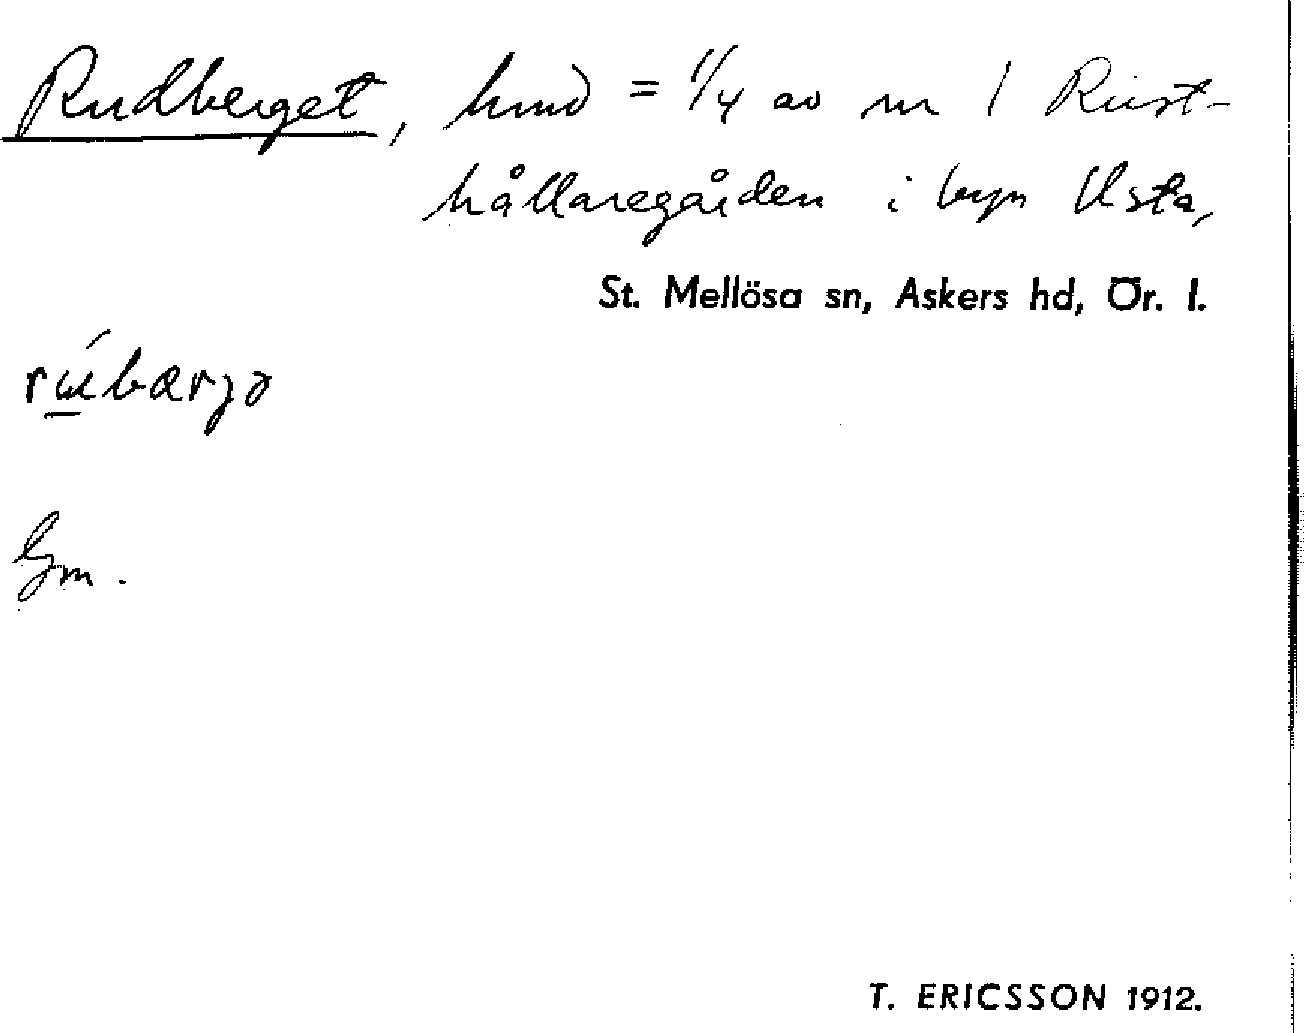 Rudberget, hmd = 1/4 av nr 1 Rust-
hållaregården i byn Usta,
St. Mellösa sn, Askers hd, Ör. l.
rúbærjə
Gm.
T. ERICSSON 1912.